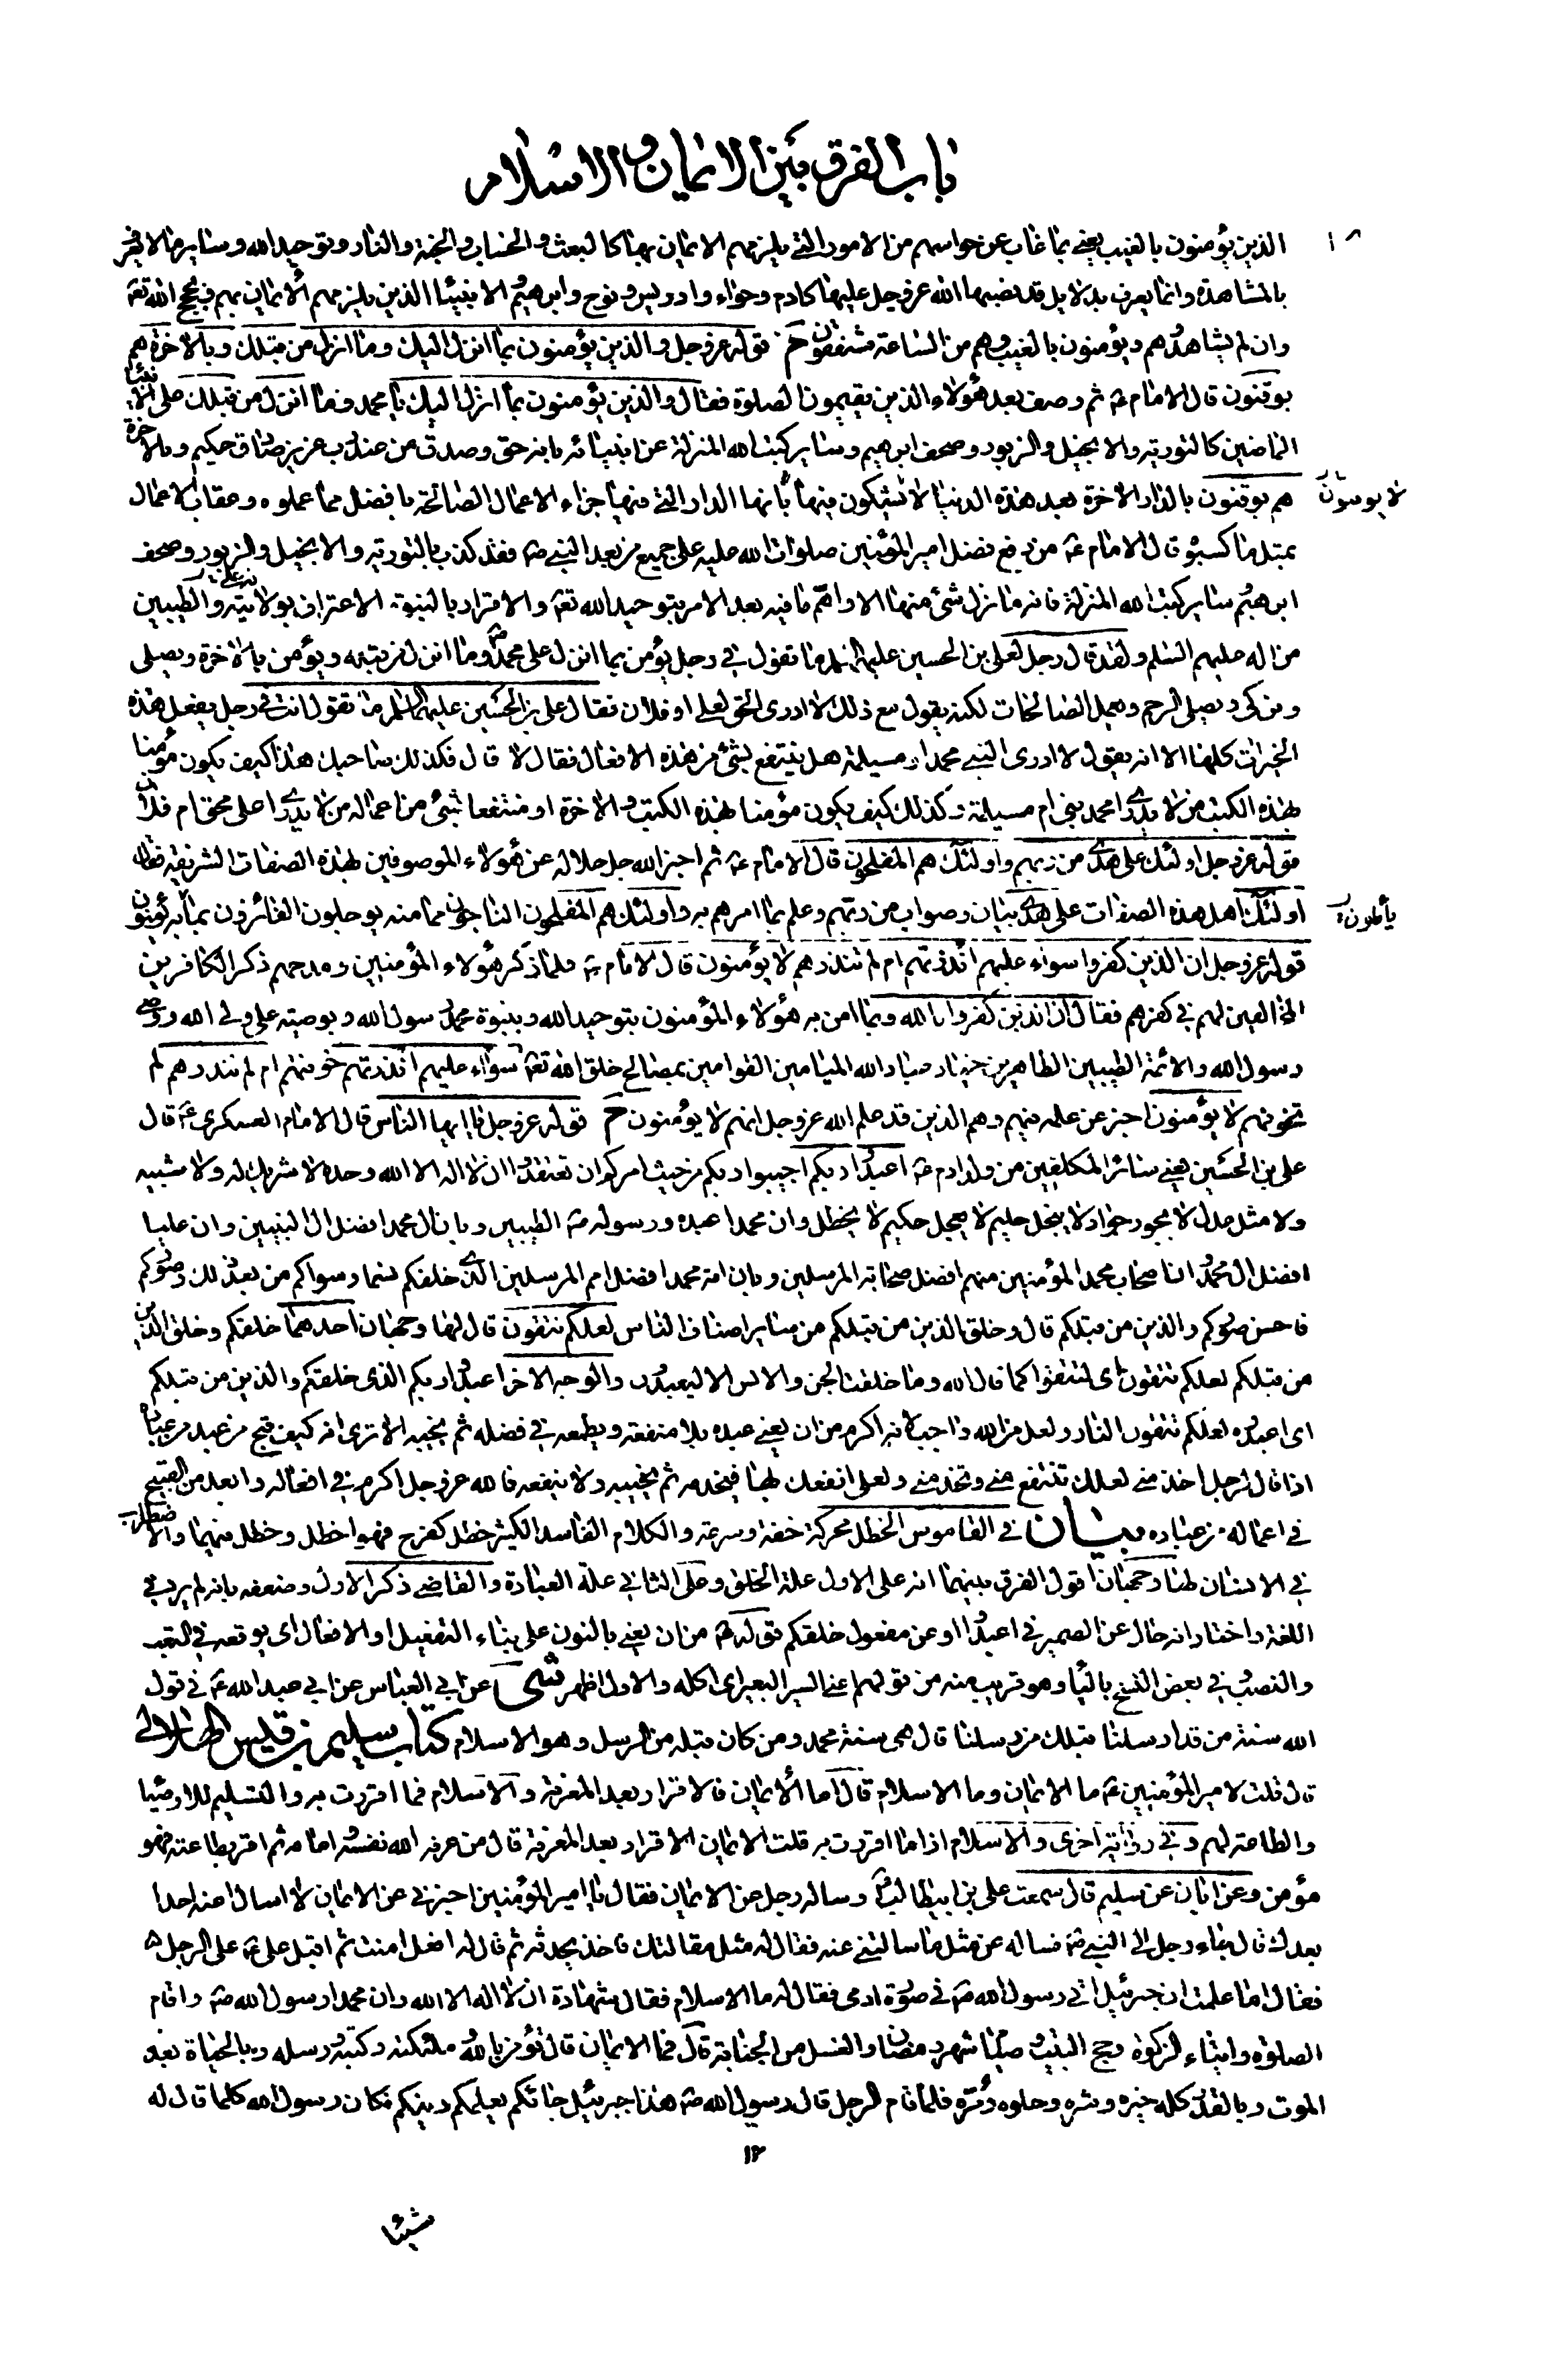 باب الفرق بين الايمان و الاسلام
الذين يؤمنون بالغيب يعني بما غاب عن حواسهم من الامور التي يلزمهم الايمان بها كالبعث و الحساب و الجنة و النار و توحيد الله و ساير ما لا يعرف
بالمشاهدة و انما يعرف بدلايل قد نصبها الله عز و جل عليها كادم و حواء و ادريس و نوح و ابرهيم و الانبياء الذين يلزمهم الايمان بهم و بحجج الله تعه
و ان لم يشاهدوهم و يؤمنون بالغيب و هم من الساعة مشفقون قوله عز و جل و الذين يؤمنون بما انزل اليك و ما انزل من قبلك و بالاخرة هم
يوقنون قال الامام ع ثم وصف بعد هؤلاء الذين يقيمون الصلوة فقال و الذين يؤمنون بما انزل اليك يا محمد و ما انزل من قبلك على الانبياء
الماضين كالتورية و الانجيل و الزبور و صحف ابرهيم و ساير كتب الله المنزلة على انبيائه بانه حق و صدق من عند رب عزيز صادق حكيم و بالاخرة
هم يوقنون بالدار الاخرة بعد هذه الدنيا لا يشكون فيها بانها الدار التي فيها جزاء الاعمال الصالحة بافضل مما عملوه و عقاب الاعمال
لا يوسون
بمثل ما كسبوه قال الامام ع من دفع فضل امير المؤمنين صلوات الله عليه على جميع من بعد النبي ص فقد كذب بالتورية و الانجيل و الزبور و صحف
ابرهيم و ساير كتب الله المنزلة فانه ما نزل شئ منها الا و اهم ما فيه بعد الامر بتوحيد الله تعه و الاقرار بالنبوة الاعتراف بولاية علي و الطيبين
من اله عليهم السلم و لقد قال رجل لعلي بن الحسين عليهما السلم ما تقول في رجل يؤمن بما انزل على محمد ص و ما انزل من قبله و يؤمن بالاخرة و يصلي
و يزكي و يصل الرحم و يعمل الصالحات لكنه يقول مع ذلك لا ادري الحق لعلي او فلان فقال علي بن الحسين عليهما السلم ما تقول انت في رجل يفعل هذه
الخيرات كلها الا انه يقول لا ادري النبي محمد او مسيلمة هل ينتفع بشئ من هذه الافعال فقال لا قال فكذلك صاحبك هذا كيف يكون مؤمنا
بهذه الكتب من لا يدري ا محمد نبي ام مسيلمة و كذلك كيف يكون مؤمنا بهذه الكتب و الاخرة او منتفعا بشئ من اعماله من لا يدري ا علي محق ام فلان
قوله عز و جل اولئك على هدى من ربهم و اولئك هم المفلحون قال الامام ع ثم اخبر الله جل جلاله عن هؤلاء الموصوفين بهذه الصفات الشريفة فقال
اولئك اهل هذه الصفات على هدى بيان و صواب من ربهم و علم بما امرهم به و اولئك هم المفلحون الناجون مما منه يوجلون الفائزون بما به يؤمنون
يأملون
قوله عز و جل ان الذين كفروا سواء عليهم ا انذرتهم ام لم تنذرهم لا يؤمنون قال الامام ع فلما ذكر هؤلاء المؤمنين و مدحهم ذكر الكافرين
المخالفين لهم في كفرهم فقال ان الذين كفروا بالله و بما امن به هؤلاء المؤمنون بتوحيد الله و بنبوة محمد رسول الله و بوصيه علي ولي الله و وصي
رسول الله و الائمة الطيبين الطاهرين خيار عباد الله الميامين القوامين بمصالح خلق الله تعه سواء عليهم ا انذرتهم خوفتهم ام لم تنذرهم لم
تخوفهم لا يؤمنون اخبر عن علمه فيهم و هم الذين قد علم الله عز و جل انهم لا يؤمنون قوله عز و جل يا ايها الناس قال الامام العسكري ع قال
علي بن الحسين يعني سائر المكلفين من ولد ادم ع اعبدوا ربكم اجيبوا ربكم من حيث امركم ان تعتقدوا ان لا اله الا الله وحده لا شريك له و لا شبيه
و لا مثل عدل لا يجور جواد لا يبخل حليم لا يعجل حكيم لا يخطل و ان محمدا عبده و رسوله ص الطيبين و بان ال محمد افضل ال النبيين و ان عليا
افضل ال محمد و ان اصحاب محمد المؤمنين منهم افضل صحابة المرسلين و بان امة محمد افضل امم المرسلين الذي خلقكم نسما و سواكم من بعد ذلك و صوركم
فاحسن صوركم و الذين من قبلكم قال و خلق الذين من قبلكم من ساير اصناف الناس لعلكم تتقون قال لها وجهان احدهما خلقكم و خلق الذين
من قبلكم لعلكم تتقون اي لتتقوا كما قال الله و ما خلقت الجن و الانس الا ليعبدون و الوجه الاخر اعبدوا ربكم الذي خلقكم و الذين من قبلكم
اي اعبدوه لعلكم تتقون النار و لعل من الله واجب لانه اكرم من ان يعني عبده بلا منفعة و يطمعه في فضله ثم يخيبه الا ترى انه كيف قبح من عبد من عباده
اذا قال لرجل اخدمني لعلك تنتفع مني و تخدمني و لعلي انفعك بها فيخدمه ثم يخيبه و لا ينفعه فالله عز و جل اكرم في افعاله و ابعد من القبيح
في اعماله من عباده بيان في القاموس الخطل محركة خفة و سرعة و الكلام الفاسد الكثير خطل كفرح فهو اخطل و خطل فيهما و الاضطراب
في الانسان لها وجهان اقول الفرق بينهما انه على الاول علة الخلق و على الثاني علة العبادة و القاضي ذكر الاول و ضعفه بانه لم يرد في
اللغة و اختار انه حال عن الضمير في اعبدوا او عن مفعول خلقكم قوله ع من ان يعني بالنون على بناء التفعيل او الافعال اي يوقعه في التعب
و النصب في بعض النسخ بالياء و هو قريب منه من قولهم اعي السير البعير اي اكله و الاول اظهر شى عن ابي العباس عن ابي عبد الله ع في قول
الله سنة من قد ارسلنا قبلك من رسلنا قال هي سنة محمد و من كان قبله من الرسل و هو الاسلام كتاب سليم بن قيس الهلالي
قال قلت لامير المؤمنين ع ما الايمان و ما الاسلام قال اما الايمان فالاقرار بعد المعرفة و الاسلام فما اقررت به و التسليم للاوصياء
و الطاعة لهم و في رواية اخرى و الاسلام اذا ما اقررت به قلت الايمان الاقرار بعد المعرفة قال من عرفه الله نفسه و امامه ثم اقر بطاعته فهو
مؤمن و عن ابان عن سليم قال سمعت علي بن ابيطالب ع و ساله رجل عن الايمان فقال يا امير المؤمنين اخبرني عن الايمان لا اسال عنه احدا
بعدك قال جاء رجل الى النبي ص فساله عن مثل ما سالتني عنه فقال له مثل مقالتك فاخذ يحدثه ثم قال له افعل امنت ثم اقبل علي ع على الرجل
فقال اما علمت ان جبرئيل اتى رسول الله ص في صورة ادمي فقال له ما الاسلام فقال شهادة ان لا اله الا الله و ان محمدا رسول الله ص و اقام
الصلوة و ايتاء الزكوة و حج البيت و صيام شهر رمضان و الغسل من الجنابة قال فما الايمان قال تؤمن بالله و ملئكته و كتبه و رسله و بالحياة بعد
الموت و بالقدر كله خيره و شره و حلوه و مره فلما قام الرجل قال رسول الله ص هذا جبرئيل جائكم يعلمكم دينكم فكان رسول الله كلما قال له
١٢
شيئا